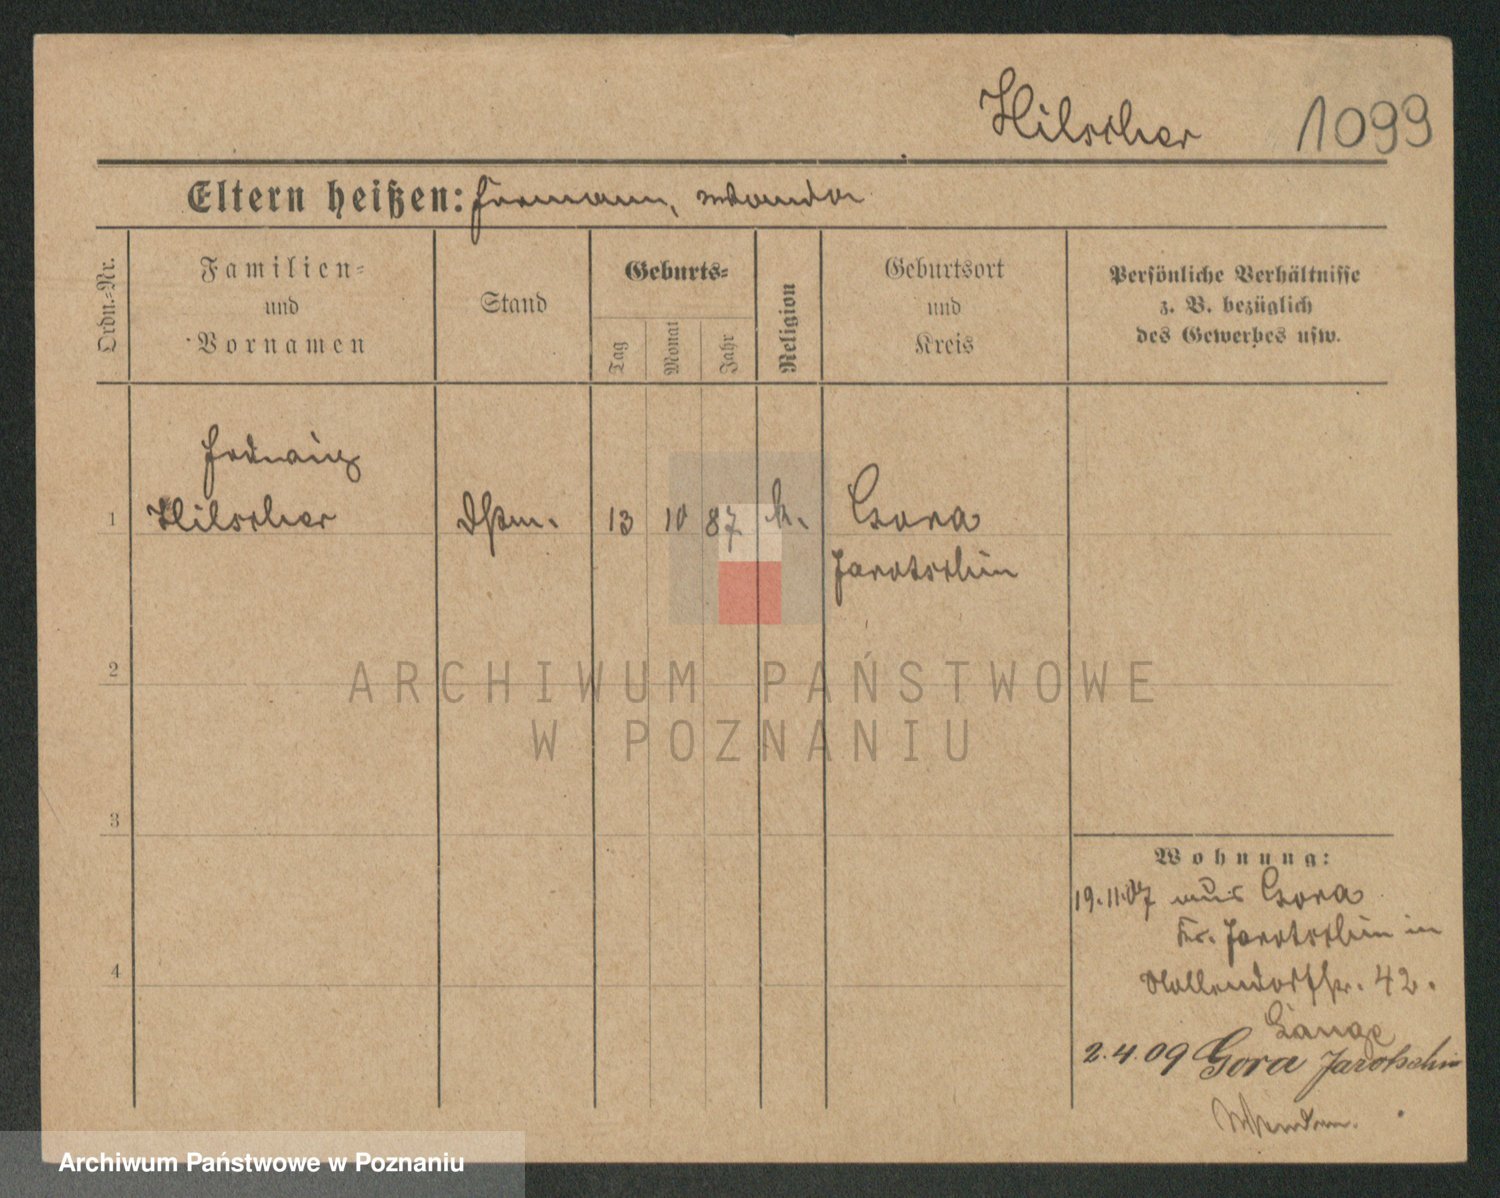 Hilscher 1099
Eltern heißen: Hermann, Wanda
Ordn.-Nr.
Familien-
und
Vornamen
Stand
Geburts-
Tag
Monat
Jahr
Religion
Geburtsort
und
Kreis
Persönliche Verhältnisse
z. B. bezüglich
des Gewerbes usw.
Hedwig
1 Hilscher 13 10 87 k. Gora
Jarotschin
2
3
4
ARCHIWUM PAŃSTWOWE
W POZNANIU
Wohnung:
19.11.07 aus Gora
Kr. Jarotschin in
Nollendorfstr. 42.
Lange
2.4.09 Gora Jarotschin
Archiwum Państwowe w Poznaniu